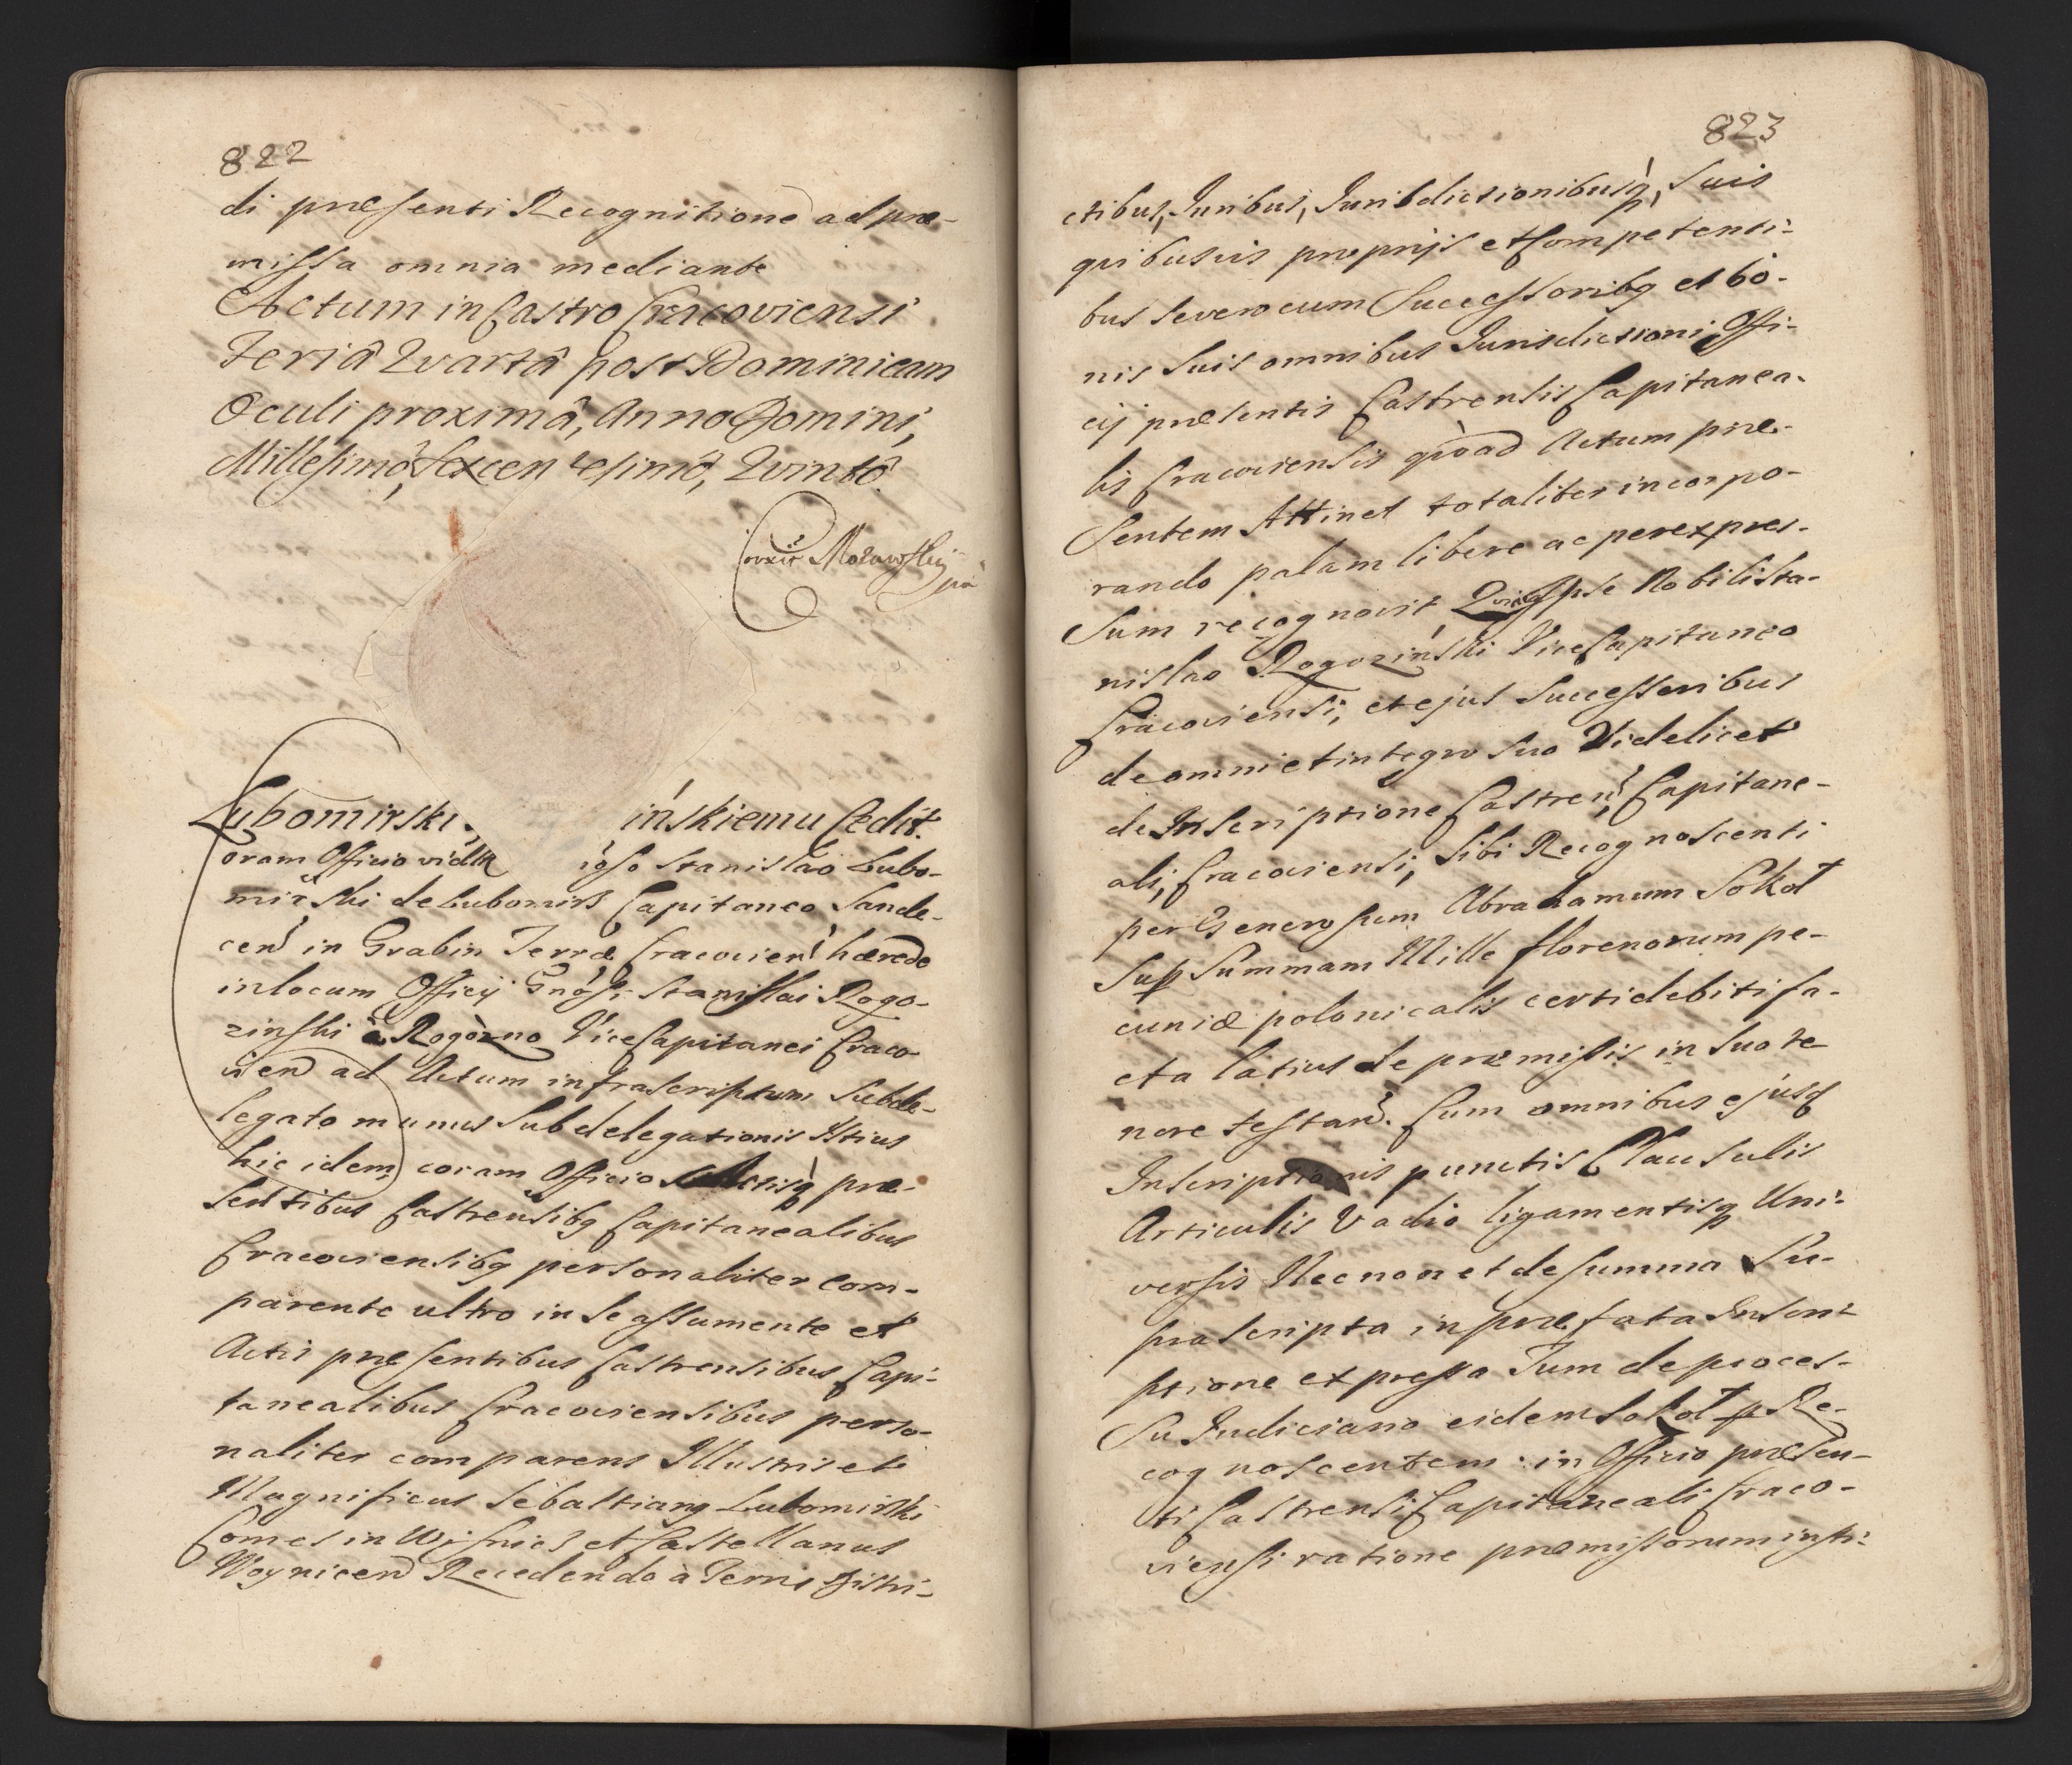 822
di præsenti Recognitione ad præ-
missa omnia mediante
Actum in Castro Cracoviensi
Feriâ Qvartâ post Dominicam
Oculi proximâ, Anno Domini,
Millesimô, Sexcentesimô, Qvintô
Corrèx Morawskij
Lubomirski inskiemu Cedit.
oram Officio vidlt ioso Stanislao Lubo-
mirski de Lubomirz Capitaneo Sande-
cen in Grabin Terræ Cracovien hærede
in locum Officij Gnosi Stanislai Rogo-
zinski à Rogòzno ViceCapitanei Craco-
vien ad Actum infrascriptum Subde-
legato munus Subdelegationis Istius
hic idem coram Officio Actisq præ-
sentibus Castrensibq Capitanealibus
Cracoviensibq personaliter com-
parente ultro in se assumente et
Actis præsentibus Castrensibus Capi-
tanealibus Cracoviensibus perso-
naliter comparens Illustris et
Magnificus Sebastianq Lubomirski
Comes in Wisnicz et Castellanus
Woynicen Recedendo à Terris Distri-
823
ctibus, Iuribus, Iurisdictionibusq, Suis
qvibusvis proprijs et Competenti-
bus Severo cum Successoribq et bo-
nis Suis omnibus Iurisdictioni Offi-
cij præsentis Castrensis Capitanea-
lis Cracoviensis qvoad Actum præ-
sentem Attinet totaliter incorpo-
rando palam libere ac per expres-
sum recognovit Qvia Ipse Nobili Sta-
nislao Rogozinski ViceCapitaneo
Cracoviensi, et ejus Successoribus
de omni et integro Suo Videlicet
de Inscriptione Castren Capitane-
ali, Cracoviensi, Sibi Recognoscenti
per Generosum Abrahamum Sokoł
Sup Summam Mille florenorum pe-
cuniæ polonicalis certi debiti fa-
cta latius de præmissis in Suo te-
nore testan. Cum omnibus ejusq
Inscriptionis punctis Clausulis
Articulis Vadio ligamentisq Uni-
versis Necnon et de Summa Su-
prascripta in præfata Inscri-
ptione expressa Tum de proces-
su Iudiciario eidem Sokoł p Re-
cognoscentem in Officio præsen-
ti Castrensi Capitaneali Craco-
viensi ratione præmissorum insti-